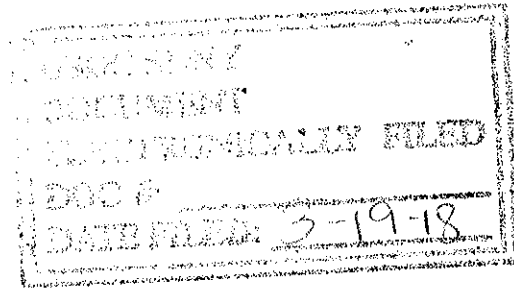 USDC SDNY
DOCUMENT
ELECTRONICALLY FILED
DOC #
DATE FILED: 3-19-18